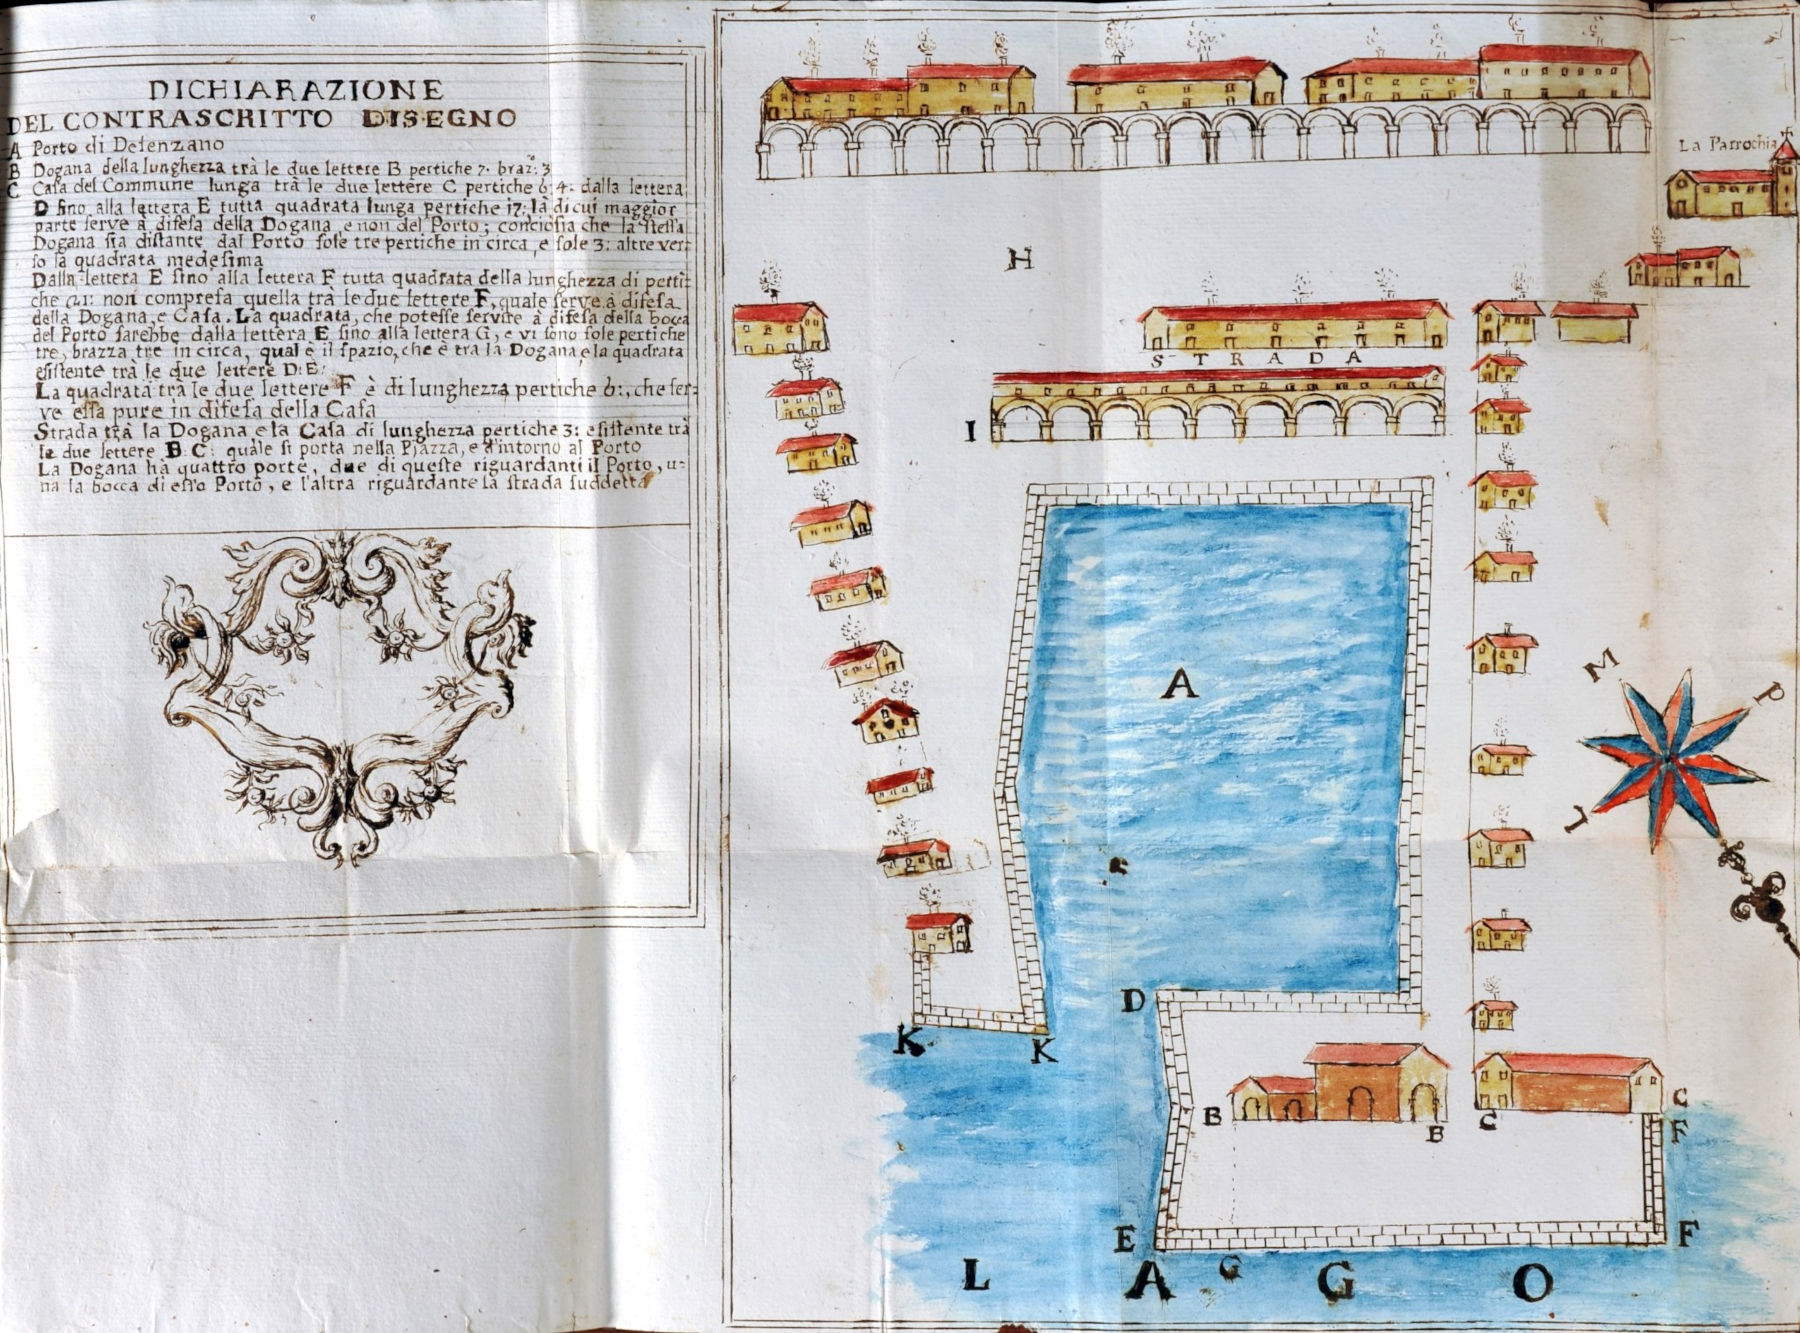 DICHIARAZIONE
DEL CONTRASCRITTO DISEGNO
A Porto di Desenzano
B Dogana della lunghezza trà le due lettere B pertiche 7. braz: 3
C Casa del Commune lunga trà le due lettere C pertiche 6: 4: dalla lettera
D sino alla lettera E tutta quadrata lunga pertiche 17: la di cui maggior
parte serve à difesa della Dogana, e non del Porto; conciosia che la stessa
Dogana sia distante dal Porto sole tre pertiche in circa, e sole 3: altre ver-
so la quadrata medesima
Dalla lettera E sino alla lettera F tutta quadrata della lunghezza di perti-
che 21: non compresa quella trà le due lettere F, quale serve à difesa
della Dogana, e Casa. La quadrata, che potesse servire à difesa della bocca
del Porto sarebbe dalla lettera E sino alla lettera G, e vi sono sole pertiche
tre, brazza tre in circa, qual è il spazio, che è trà la Dogana, e la quadrata
esistente trà le due lettere D: E:
La quadrata trà le due lettere F è di lunghezza pertiche 6:, che ser-
ve essa pure in difesa della Casa
Strada trà la Dogana e la Casa di lunghezza pertiche 3: esistente trà
le due lettere B: C: quale si porta nella Piazza, e d'intorno al Porto
La Dogana hà quattro porte, due di queste riguardanti il Porto, u-
na la bocca di esso Porto, e l'altra riguardante la strada suddetta
La Parrochia
H
STRADA
I
A
M
P
L
D
K
K
B
B
C
C
F
E
F
G
LAGO